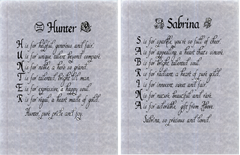 Hunter
H is for helpful, generous and fair.
U is for unique talent beyond compare.
N is for noble, a hero so grand.
T is for talented, bright
E is for expression of happy soul.
R is for regal, a heart made of gold.
Hunter, pure joy
Sabrina
S is for sparkle, you're so full of cheer.
A is for appealing, a heart that's sincere.
B is for bright
R is for radiant, a heart of pure gold.
I is for innocent, sweet and fair.
N is for natural, beautiful and rare.
A is for adorable, gift from above.
Sabrina, so precious and loved.